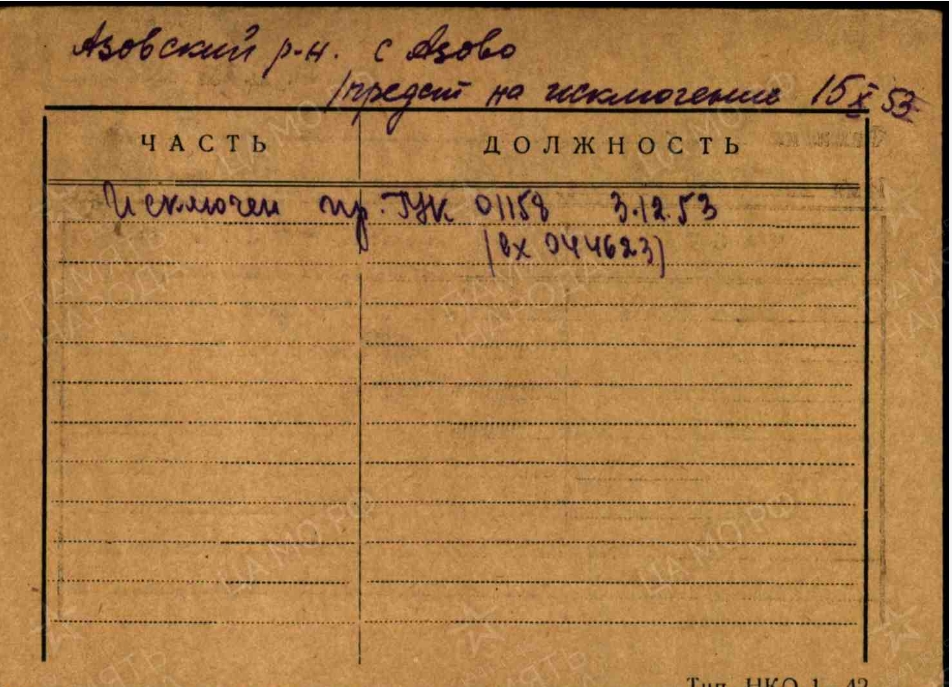 Азовский р-н. с Азово
/предст на исключение 15 X 53
ЧАСТЬ ДОЛЖНОСТЬ
Исключен пр. ГУК 01158 3.12.53
(вх 044623)
Тип. НКО 1—42